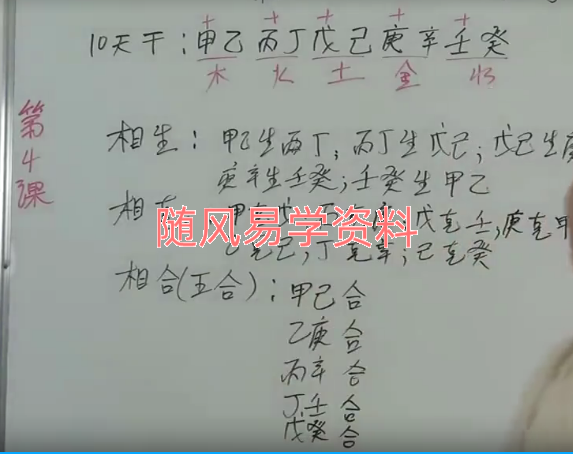 + + + + +
10天干：甲乙 丙丁 戊己 庚辛 壬癸
木 火 土 金 水
第4课
相生：甲乙生丙丁；丙丁生戊己；戊己生庚
庚辛生壬癸；壬癸生甲乙
相克 甲克戊 戊克壬，庚克甲
乙克己，丁克辛，己克癸
随风易学资料
相合(五合)：甲己合
乙庚合
丙辛合
丁壬合
戊癸合